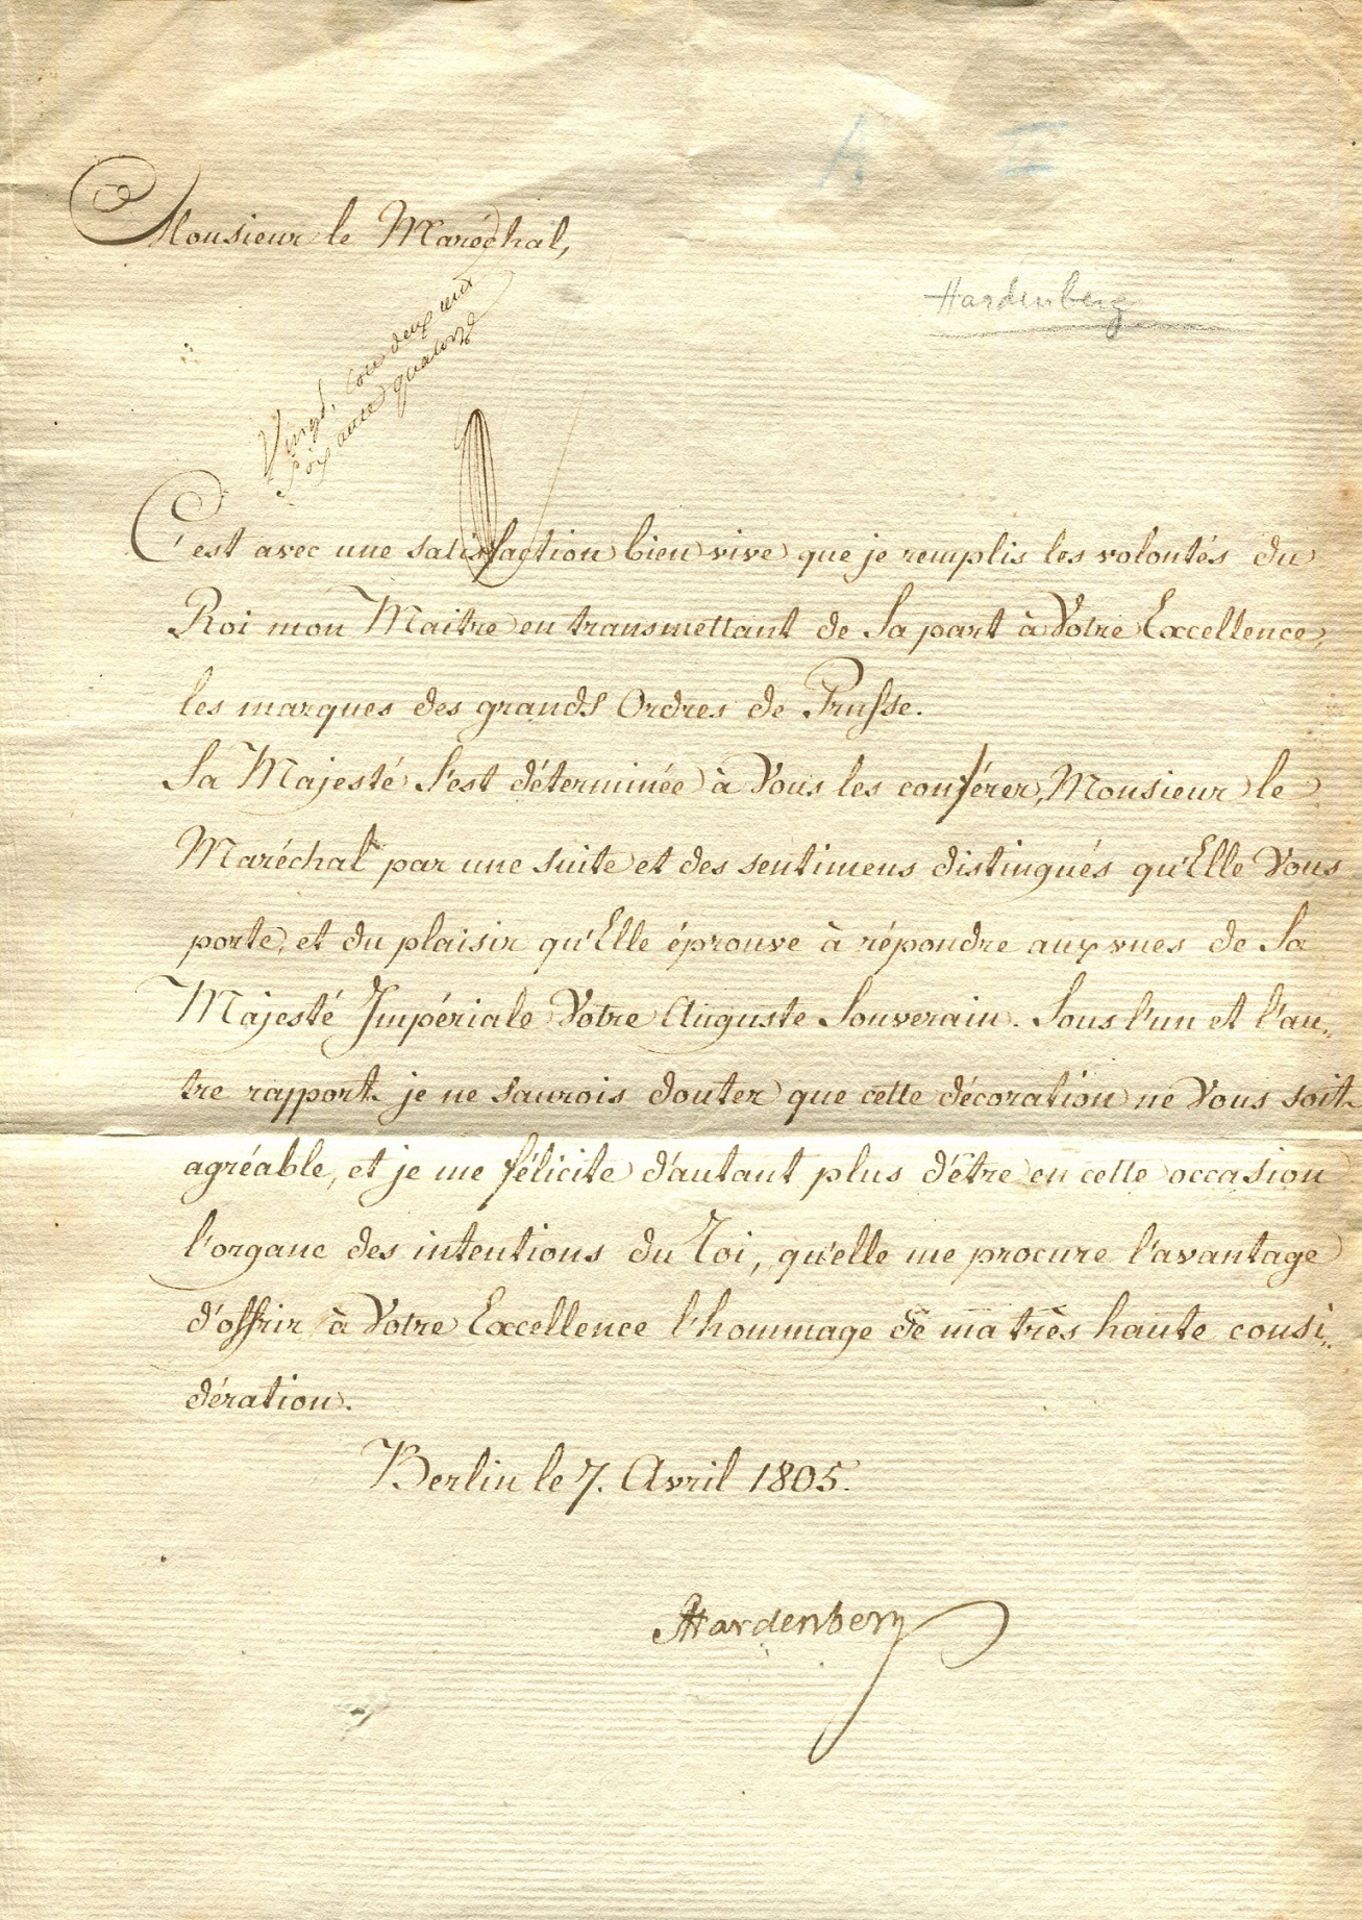 A II
Monsieur le Maréchal,
Hardenberg
Vingt, cou deux cent
soixante quatorze
C'est avec une satisfaction bien vive que je remplis les volontés du
Roi mon Maitre en transmettant de Sa part à Votre Excellence,
les marques des grands Ordres de Prusse.
Sa Majesté S'est déterminée à Vous les conférer, Monsieur le
Maréchal par une suite et des sentimens distingués qu'Elle Vous
porte, et du plaisir qu'Elle éprouve à répondre aux vues de Sa
Majesté Impériale Votre Auguste Souverain. Sous l'un et l'au-
tre rapport je ne saurois douter que cette décoration ne Vous soit
agréable, et je me félicite d'autant plus d'être en cette occasion
l'organe des intentions du Roi, qu'elle me procure l'avantage
d'offrir à Votre Excellence l'hommage de ma très haute consi-
dération.
Berlin le 7. Avril 1805.
Hardenberg